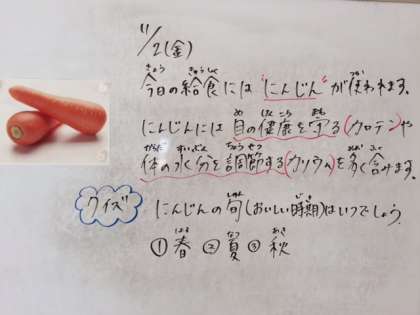 11/2(金)
今日の給食には"にんじん"が使われます。
にんじんには目の健康を守る(カロテン)や
体の水分を調節する(カリウム)を多く含みます。
クイズ にんじんの旬(おいしい時期)はいつでしょう。
①春 ②夏 ③秋